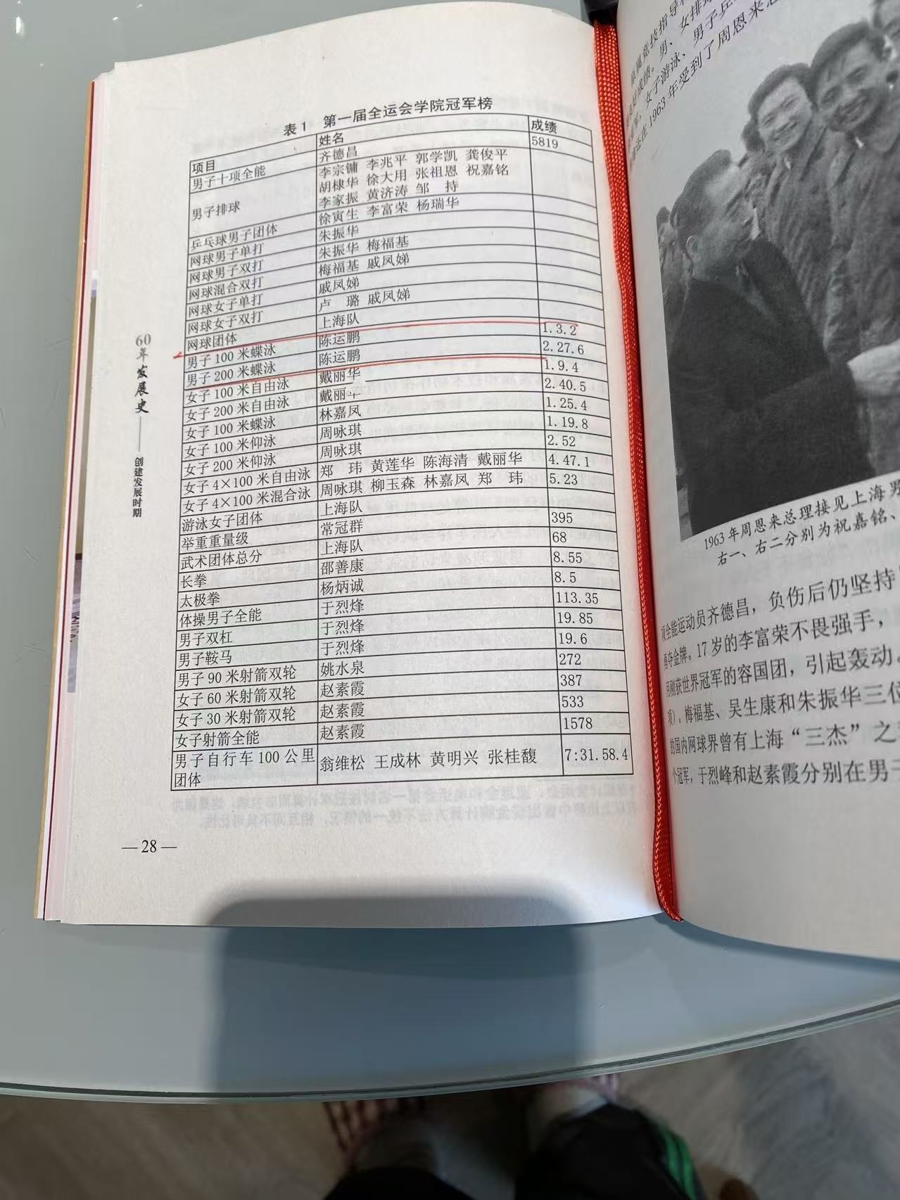 表1 第一届全运会学院冠军榜
项目 姓名 成绩
男子十项全能 齐德昌 5819
男子排球 李宗镛 李兆平 郭学凯 龚俊平
胡棣华 徐大用 张祖恩 祝嘉铭
李家振 黄济涛 邹 持
乒乓球男子团体 徐寅生 李富荣 杨瑞华
网球男子单打 朱振华
网球男子双打 朱振华 梅福基
网球混合双打 梅福基 戚凤娣
网球女子单打 戚凤娣
网球女子双打 卢 璐 戚凤娣
网球团体 上海队
男子100米蝶泳 陈运鹏 1.3.2
男子200米蝶泳 陈运鹏 2.27.6
女子100米自由泳 戴丽华 1.9.4
女子200米自由泳 戴丽华 2.40.5
女子100米蝶泳 林嘉凤 1.25.4
女子100米仰泳 周咏琪 1.19.8
女子200米仰泳 周咏琪 2.52
女子4×100米自由泳 郑 玮 黄莲华 陈海清 戴丽华 4.47.1
女子4×100米混合泳 周咏琪 柳玉森 林嘉凤 郑 玮 5.23
游泳女子团体 上海队
举重重量级 常冠群 395
武术团体总分 上海队 68
长拳 邵善康 8.55
太极拳 杨炳诚 8.5
体操男子全能 于烈烽 113.35
男子双杠 于烈烽 19.85
男子鞍马 于烈烽 19.6
男子90米射箭双轮 姚水泉 272
女子60米射箭双轮 赵素霞 387
女子30米射箭双轮 赵素霞 533
女子射箭全能 赵素霞 1578
男子自行车100公里
团体 翁维松 王成林 黄明兴 张桂馥 7:31.58.4
60年发展史——创建发展时期
— 28 —
男、女排球
女子游泳、男子乒
在1963年受到了周恩来总
1963年周恩来总理接见上海男
右一、右二分别为祝嘉铭、
全能运动员齐德昌，负伤后仍坚持
夺金牌。17岁的李富荣不畏强手，
刚获世界冠军的容国团，引起轰动。
梅福基、吴生康和朱振华三位
的国内网球界曾有上海“三杰”之
个冠军，于烈峰和赵素霞分别在男子